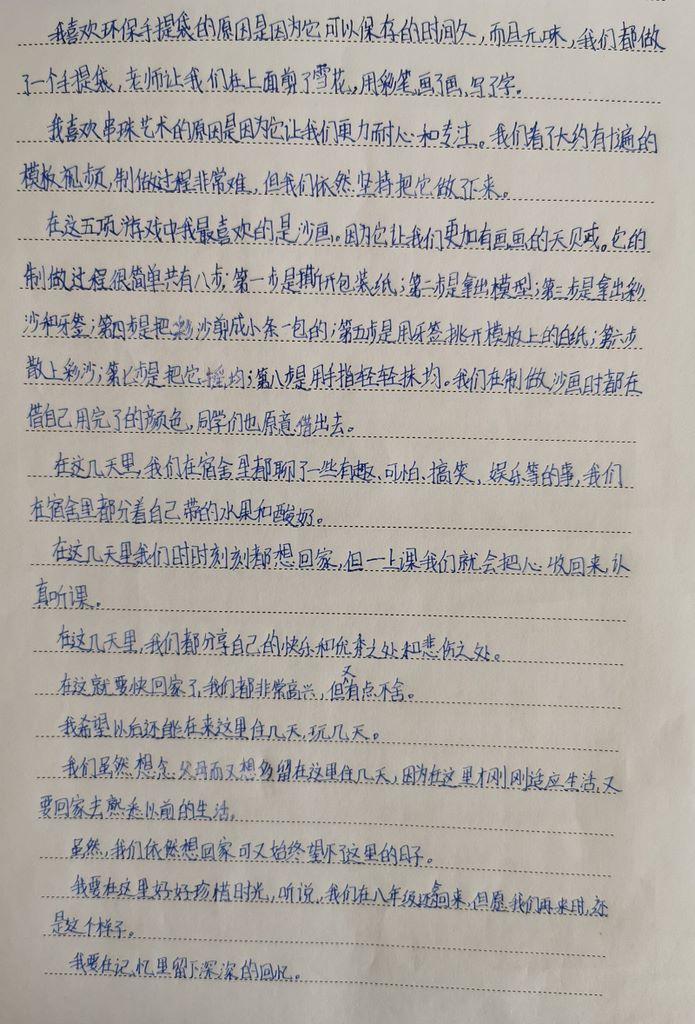 我喜欢环保手提袋的原因是因为它可以保存的时间久，而且无味，我们都做
了一个手提袋，老师让我们在上面剪了雪花，用彩笔画了画，写了字。
我喜欢串珠艺术的原因是因为它让我们更力耐心和专注。我们看了大约有十遍的
模板视频，制做过程非常难，但我们依然坚持把它做下来。
在这五项游戏中我最喜欢的是沙画。因为它让我们更加有画画的天贝或。它的
制做过程很简单共有八步：第一步是撕开包装纸；第二步是拿出模型；第三步是拿出彩
沙和牙签；第四步是把彩沙剪成小条一包的；第五步是用牙签挑开模板上的白纸；第六步
散上彩沙；第七步是把它摇均；第八步是用手指轻轻抹均。我们在制做沙画时都在
借自己用完了的颜色，同学们也原意借出去。
在这几天里，我们在宿舍里都聊了一些有趣、可怕、搞笑、娱乐等的事，我们
在宿舍里都分着自己带的水果和酸奶。
在这几天里我们时时刻刻都想回家，但一上课我们就会把心收回来，认
真听课。
在这几天里，我们都分享自己的快乐和优秀之处和悲伤之处。
在这就要快回家了，我们都非常高兴，但又有点不舍。
我希望以后还能在来这里住几天，玩几天。
我们虽然想念父母而又想多留在这里住几天，因为在这里才刚刚适应生活，又
要回家去熟悉以前的生活。
虽然，我们依然想回家可又始终望不了这里的日子。
我要在这里好好珍惜时光，听说，我们在八年级还会回来，但愿我们再来时，还
是这个样子。
我要在记忆里留下深深的回忆。